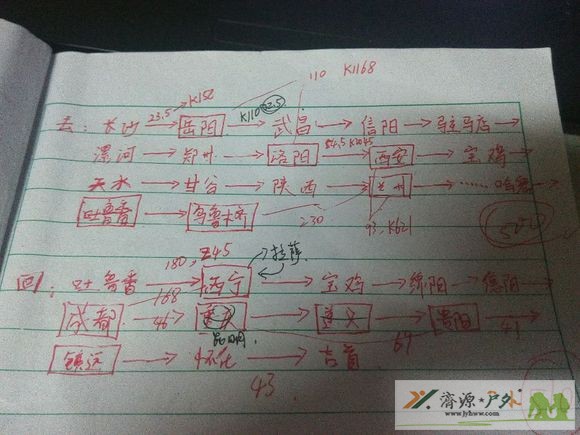 110 K1168
23.5 → K152 K110 22.5
去：长沙 → 岳阳 → 武昌 → 信阳 → 驻马店 →
54.5 K1045
漯河 → 郑州 → 洛阳 → 西安 → 宝鸡
天水 → 甘谷 → 陕西 → 兰州 → …… 哈密 →
吐鲁番 → 乌鲁木齐 230 93, K621
180, Z45 拉萨
回：吐鲁番 → 西宁 → 宝鸡 → 绵阳 → 德阳 →
168
成都 46 → 重庆 → 遵义 → 贵阳 41
昆明 64
镇远 → 怀化 → 吉首
43
济源户外
www.jyhww.com